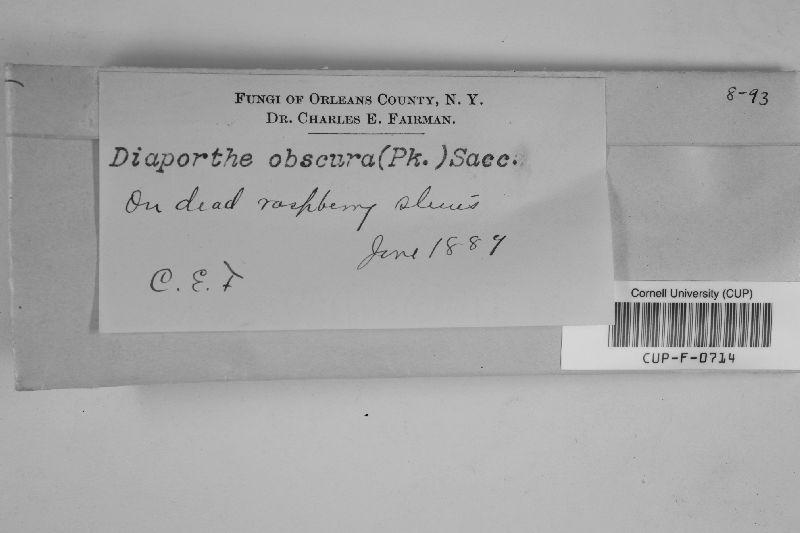 8-93
FUNGI OF ORLEANS COUNTY, N. Y.
DR. CHARLES E. FAIRMAN.
Diaporthe obscura (Pk.) Sacc.
On dead raspberry stems
June 1889
C. E. F
Cornell University (CUP)
CUP-F-0714